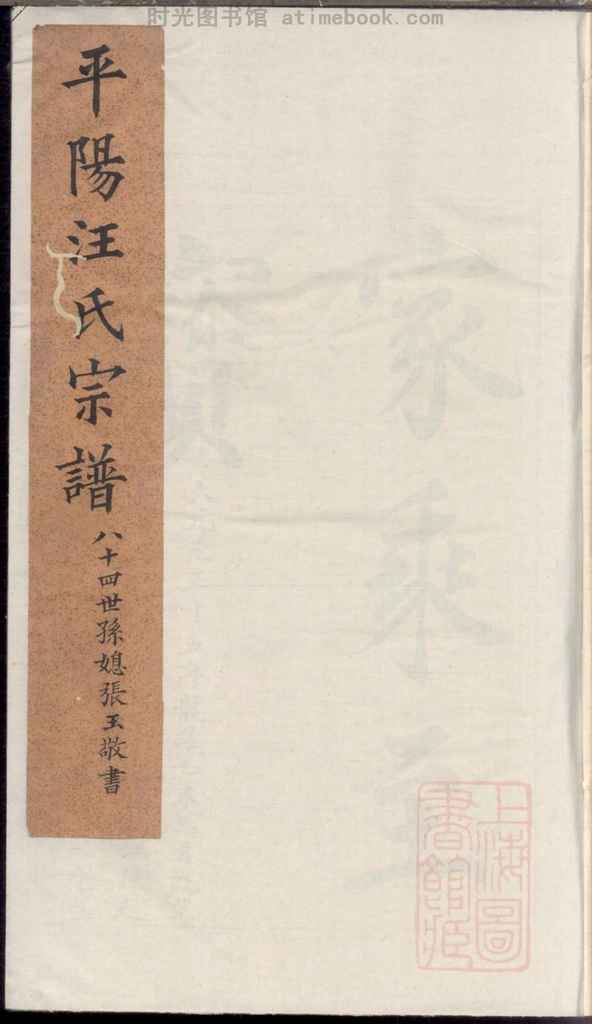 时光图书馆 atimebook.com
平陽汪氏宗譜
八十四世孫媳張玉敬書
家乘
上海圖
書館藏